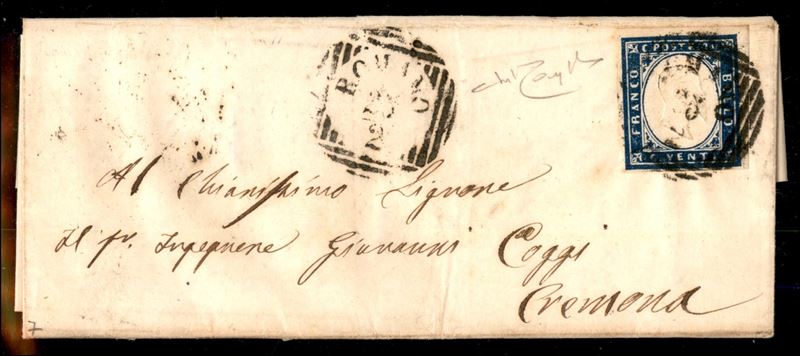 ROMANO
C. POSTE
FRANCO
BOLLO
C. VENTI
Al Chiarissimo Signore
Il Sr. Ingegnere Giovanni Coggi
Cremona
7